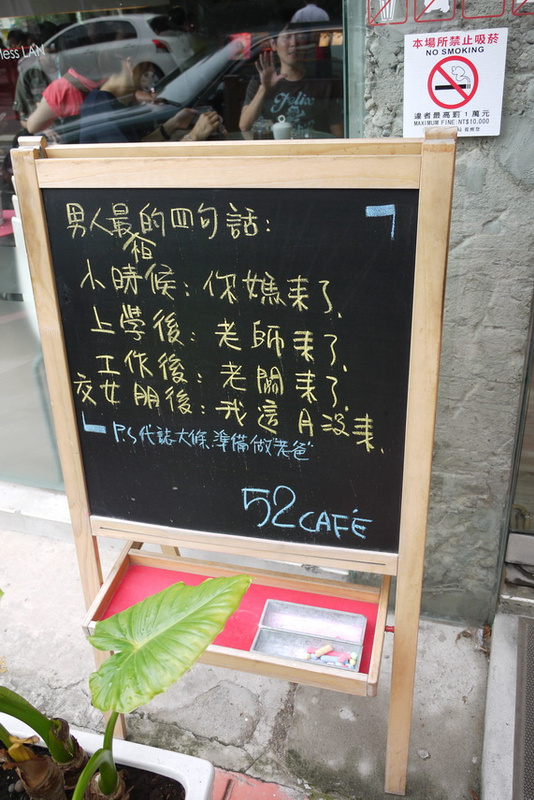 less LAN
本場所禁止吸菸
NO SMOKING
違者最高罰1萬元
MAXIMUM FINE:NT$10,000
男人最怕的四句話:
小時候:你媽来了、
上學後:老師来了、
工作後:老闆来了、
交女朋後:我這月沒来、
P.S代誌大條,準備做"老爸"
52 CAFÉ